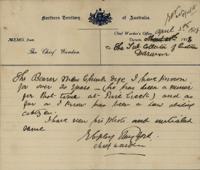 Northern Territory of Australia.
MEMO. from
The Chief Warden
Chief Warden's Office,
April 1918
The Sub Collector of Customs
Darwin
The Bearer Chunk I have known
for over 20 years — (he has been a miner
for most time at Pine Creek) and as
far as I know has been a law abiding
citizen.
I have seen his photo and
same
Chief Warden